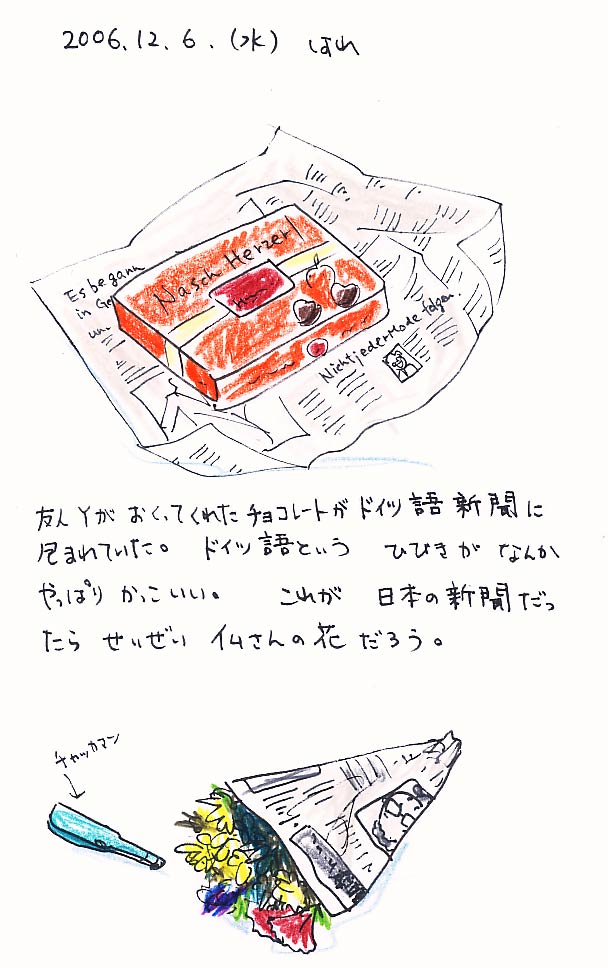 2006.12.6.(水) はれ
Es begann
in Ge
un
Nasch Herzerl
Nicht jeder Mode folgen.
友人Yが おくってくれた チョコレートが ドイツ語 新聞に
包まれていた。 ドイツ語という ひびきが なんか
やっぱり かっこいい。 これが 日本の新聞だっ
たら せいぜい 仏さんの花 だろう。
チャッカマン